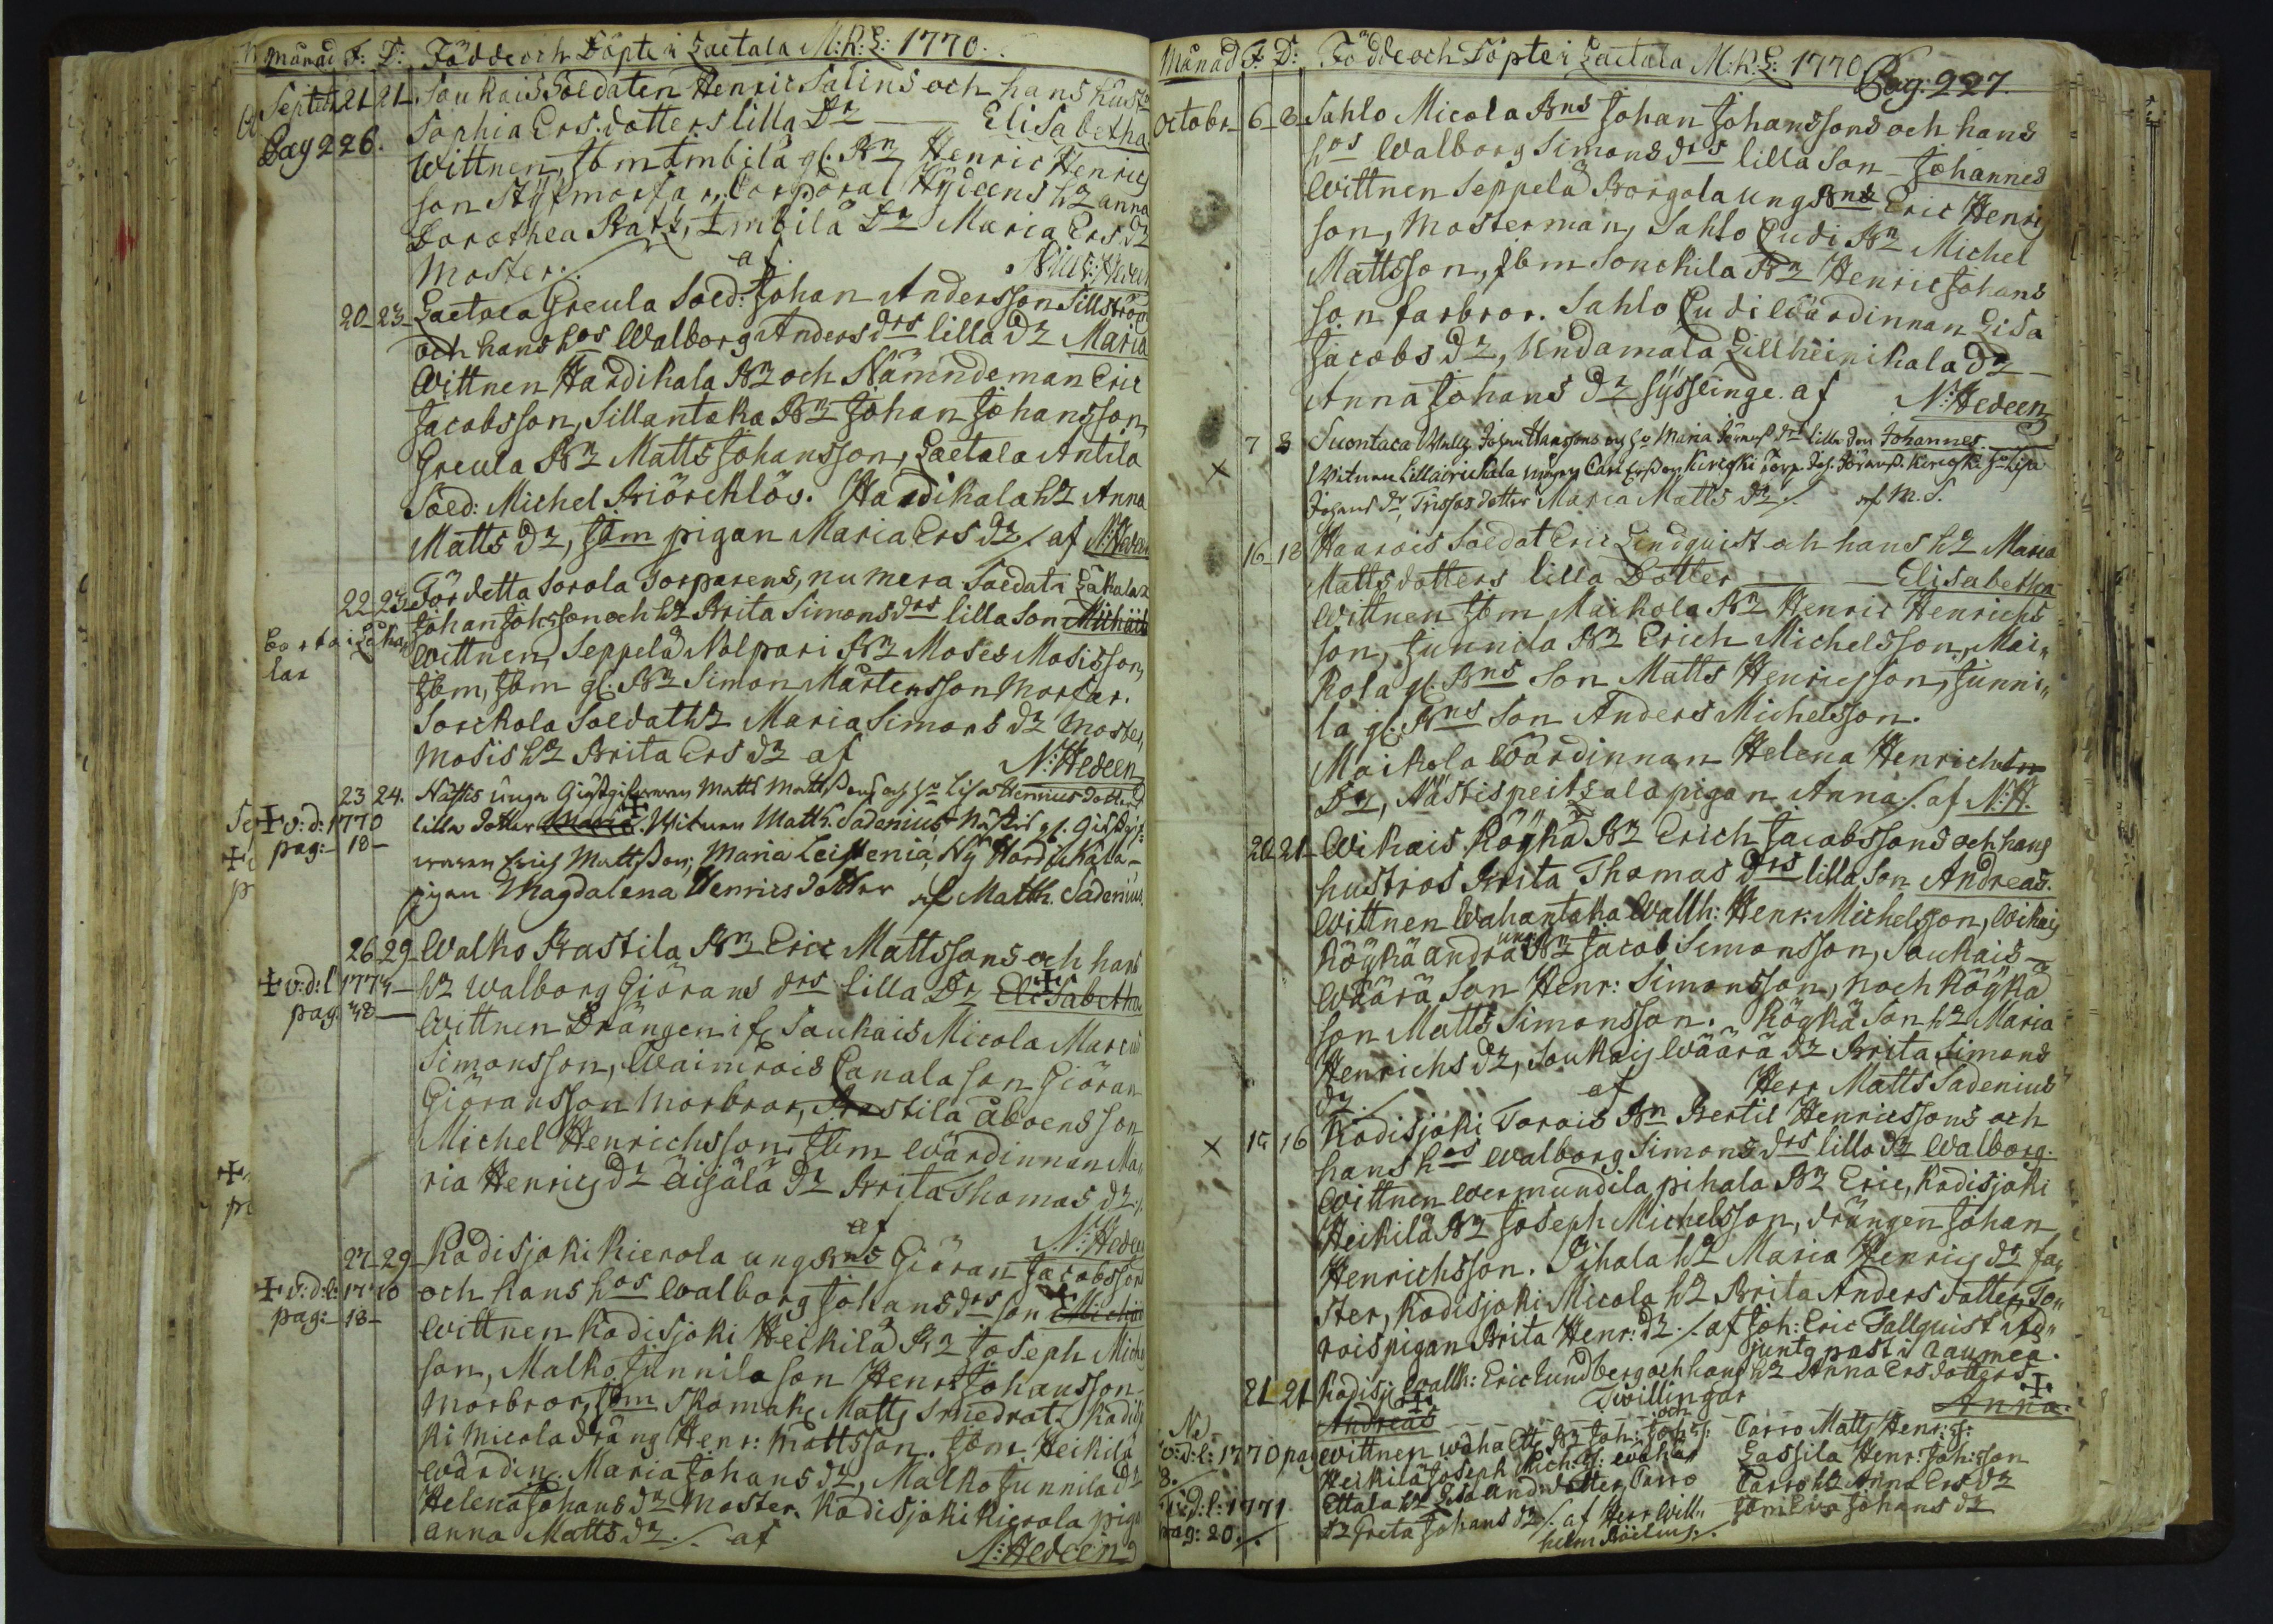 Månad F: D: Föddeoch Döpte i Laetala M:K:L: 1770.
Septbr 21 21 Soukais Soldaten Henric Salins och hans hust
Pag 226.
Sophia Ers.dotters lilla Dr — Elisabetha
Wittnen, Ibm Imbilä gl. Bn Henric Henrics
son Styfmorfar, Corporal Hydeens h2 anna
Dorothea Bartz, Imbilä Dr Maria Ers d2
Moster ./. af N: Hedeen
20 23 Laetala Greula Sold: Johan Andersson Sillström
och hans hos Walborg Anders drs lilla d2 Maria
Wittnen Hardikala Bn och Nämndeman Eric
Jacobsson, Sillantaka Bn Johan Johansson,
Greula Bn Matts Johansson, Laetala Antila
Soed: Michel Biörcklöv. Hardikala h2 Anna
Matts d2, Ibm pigan Maria Ers d2 ./. af N: Hedeen
22 23 För detta Sorola Torparens, nu mera Soldat i
Johan Johsson och h2 Brita Simons drs lilla Son Michäel
Wittnen, Seppelä Nolpari Bn Moses Mosisson,
Ibm, Ibm gl. Bn Simon Mårtensson Morfar.
Sorckola Soldat h2 Maria Simons d2 Moster,
Mosis h2 Brita Ers d2 af N: Hedeen
23 24. Nästis unga Giästgifwaren Matts Mattssons och ho Lisa Henrics dotters
+ v: d: 1770
pag: 18
lilla dotter Maria. Witnen Matth. Sadenius Nästis gl. Giästgif
waren Erich Mattsson, Maria Leistenia, Ny Hardikala
pigan Magdalena Henrics dotter af Matth. Sadenius
26 29 Walko Rastila Bn Eric Mattssons och hans
+ v: d: l 1774
pag. 48
h2 Walborg Giörans drs lilla Dr Elisabetha
Wittnen Drängen if Soukais Micola Marcus
Simonsson, Waimrois Canala son Giöran
Giöransson Morbror, Rastila åboens son
Michel Henrichsson Ibm wärdinnan Ma
ria Henrics d2 Äijälä d2 Brita Thomas d2 ./.
af N: Hedeen
27 29 Kodisjoki Kierola ung Bns Giöran Jacobsson
+ v: d: l: 1770
pag: 18
och hans hos Walborg Johans drs son Michäel
Wittnen Kodisjoki Heikilä Bn Joseph Michel
son, Malko Junnila son Henr: Johansson
Morbror, Ibm Skomak Matts Smedrot. Kodisjo
ki Micola dräng Henr: Mattsson. Ibm Heikilä
wärdin. Maria Johans d2, Malko Junnila d2
Helena Johans d2 Moster. Kodisjoki Kierola piga
Anna Matts d2 ./. af N: Hedeen
Månad F: D: Föddeoch Döpte i Laetala M:K:L: 1770 Pag: 227.
Octobr 6 8 Sahlo Micola Bns Johan Johanssons och hans
hos Walborg Simons drs lilla Son Johannes
Wittnen Seppelä Borgola ung Bns Eric Henrics
son, Mosterman, Sahlo Cudi Bn Michel
Mattsson, Ibm Sonckila Bn Henric Johans
son farbror. Sahlo Cudi Wärdinnan Lisa
Jacobs d2, Undamala Lillheinikala d2
Anna Johans d2 sysslinge. af N: Hedeen
7 8 Suontaca Wallh Johan Hanssons och ho Maria Jörans drs lilla Son Johannes.
Witnen Lillairikala ungen Carl Ersson, Kiveski Torp. Joh. Jöranss. Kiveski ho Lisa
Johans dr, dotter Maria Matts d2 ./. af M. S.
16 18 Haarois Soldat Eric Lindquist och hans h2 Maria
Matts dotters lilla Dotter — Elisabetha
Wittnen Ibm Maikola Bn Henric Henrichs
son, Junnila Bn Erich Michelsson, Mai
kola gl. Bns Son Matts Henricsson, Junni
la gl. Bns Son Anders Michelsson.
Maikola Wärdinnan Helena Henrichs
D2, Nästispeitsala pigan Anna ./. af N: H.
20 21 Wikais Köykä Bn Erich Jacobssons och hans
hustros Brita Thomas drs lilla Son Andreas.
Wittnen Wahantaka Wallh: Henr: Michelsson, Wikais
Köykä andra ung Bn Jacob Simonsson, Soukais
Wäärä Son Henr: Simonsson, noch Köykä
son Matts Simonsson. Köykä Son h2 Maria
Henrichs d2, Soukais Wäärä d2 Brita Simons
d2 ./. af Herr Matts Sadenius
15 16 Kodisjoki Torois Bn Bertil Henricssons och
hans hos Walborg Simons drs lilla d2 Walborg.
Wittnen Wermundila pihala Bn Eric, Kodisjoki
Heikilä Bn Joseph Michelsson, drängen Johan
Henrichsson. Pihala h2 Maria Henrics d2 fa
ster, Kodisjoki Micola h2 Brita Anders dotter, To
rois pigan Brita Henr: d2. ./. af Joh: Eric Fallquist Ad
juntg past i Raumea.
21 21 Kodisj Wallh: Eric Lundberg och hans h2 Anna Ers dotters
Twillingar
Andreas och Anna.
v: d: l: 1770 pag
8.
Wittnen waha Ett. Bn Joh: Johss: Carro Matts Henr: s:
Heikilä Joseph Mich: s: waha Lassila Henr: Joh:son
v: d: l: 1771
pag: 20 ./.
Ettala h2 Lisa And dotter, Carro Carro h2 Anna Ers d2
d2 Greta Johans d2 ./. af Herr Will Ibm Eva Johans d2
helm